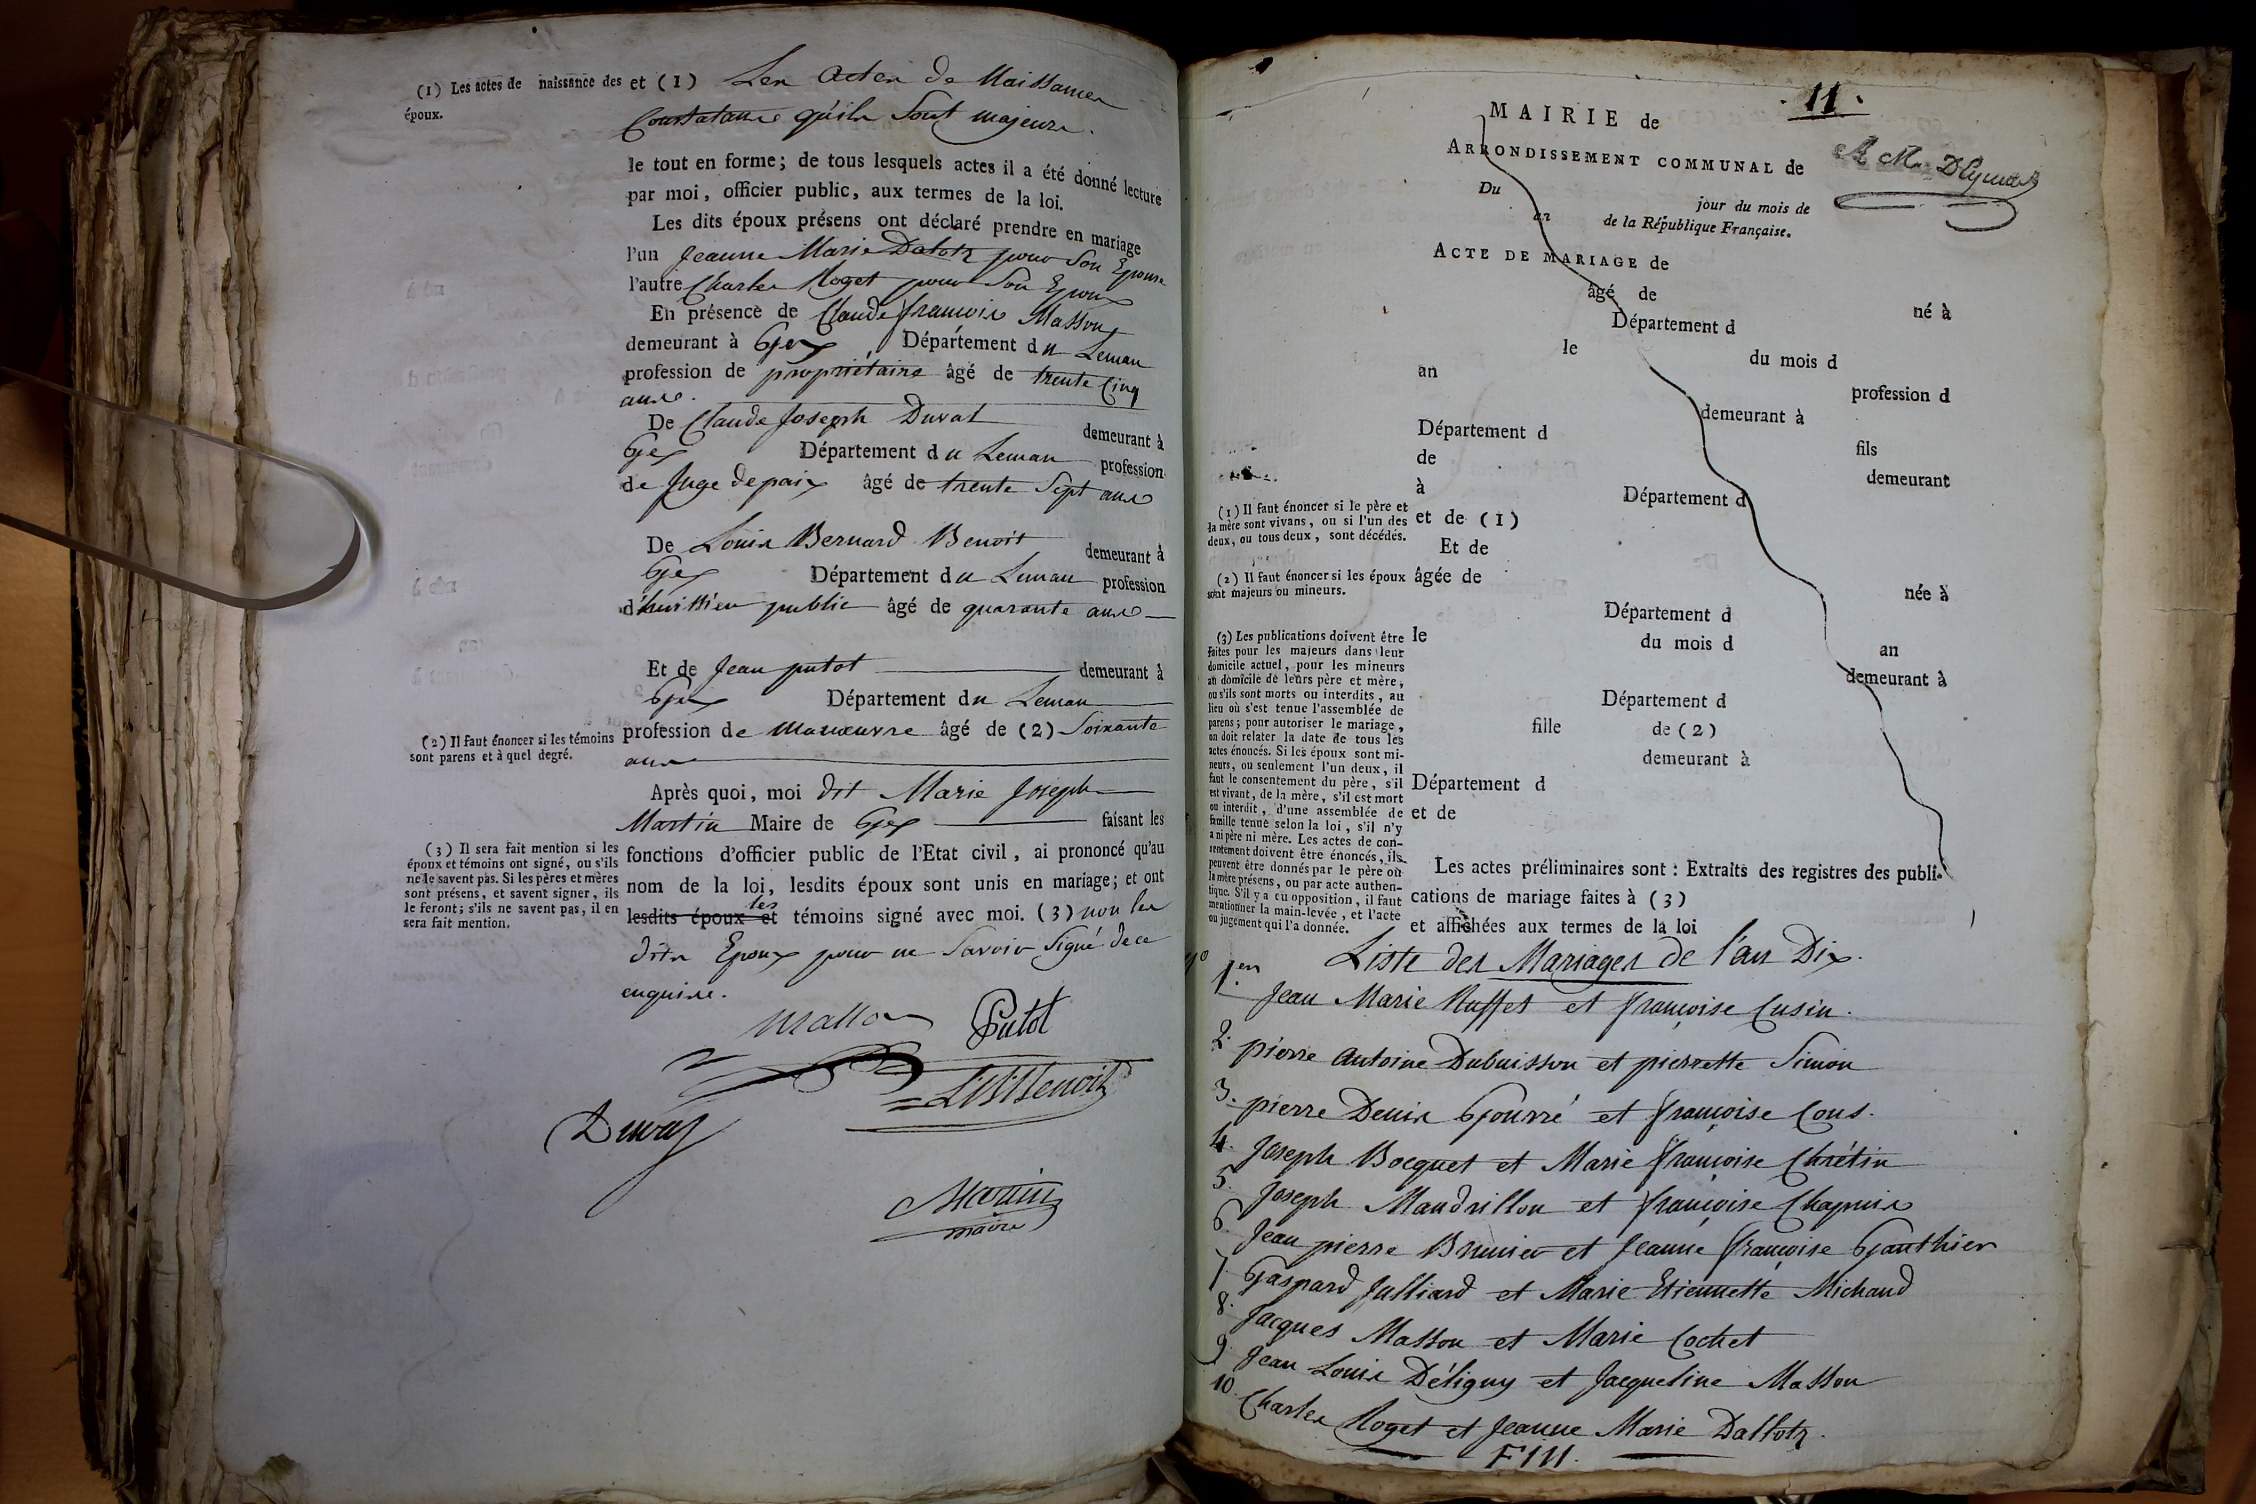 (1) Les actes de naissance des
époux.
et (1) Les actes de Naissances
Constatants qu'ils sont majeurs.
le tout en forme; de tous lesquels actes il a été donné lecture
par moi, officier public, aux termes de la loi.
Les dits époux présens ont déclaré prendre en mariage
l'un Jeanne Marie Dalotz pour son Epouse
l'autre Charles Roget pour son Epoux
En présence de Claude françois Masson
demeurant à Gex Département du Leman
profession de propriétaire âgé de trente cinq
ans.
De Claude Joseph Duval demeurant à
Gex Département du Leman profession
de Juge de paix âgé de trente sept ans
De Louis Bernard Benoit demeurant à
Gex Département du Leman profession
d'huissier public âgé de quarante ans
Et de Jean putot demeurant à
Gex Département du Leman
profession de manœuvre âgé de (2) Soixante
ans
(2) Il faut énoncer si les témoins
sont parens et à quel degré.
Après quoi, moi dit Marie Joseph
Martin Maire de Gex faisant les
fonctions d'officier public de l'Etat civil, ai prononcé qu'au
nom de la loi, lesdits époux sont unis en mariage; et ont
lesdits époux et les témoins signé avec moi. (3) non les
dits Epoux pour ne savoir signé de ce
enquise.
(3) Il sera fait mention si les
époux et témoins ont signé, ou s'ils
ne le savent pas. Si les pères et mères
sont présens, et savent signer, ils
le feront; s'ils ne savent pas, il en
sera fait mention.
Masson Putot
LBBenoit
Duval
Martin
maire
11.
MAIRIE de
ARRONDISSEMENT COMMUNAL de
Du jour du mois de
an de la République Française.
ACTE DE MARIAGE de
âgé de né à
Département d
le du mois d
an profession d
demeurant à
Département d fils
de demeurant
à Département d
et de (1)
Et de
âgée de née à
Département d
le du mois d an
demeurant à
Département d
fille de (2)
demeurant à
Département d
et de
(1) Il faut énoncer si le père et
la mère sont vivans, ou si l'un des
deux, ou tous deux, sont décédés.
(2) Il faut énoncer si les époux
sont majeurs ou mineurs.
(3) Les publications doivent être
faites pour les majeurs dans leur
domicile actuel, pour les mineurs
au domicile de leurs père et mère,
ou s'ils sont morts ou interdits, au
lieu où s'est tenue l'assemblée de
parens; pour autoriser le mariage,
on doit relater la date de tous les
actes énoncés. Si les époux sont mi-
neurs, ou seulement l'un deux, il
faut le consentement du père, s'il
est vivant, de la mère, s'il est mort
ou interdit, d'une assemblée de
famille tenue selon la loi, s'il n'y
a ni père ni mère. Les actes de con-
sentement doivent être énoncés, ils
peuvent être donnés par le père où
la mère présens, ou par acte authen-
tique. S'il y a eu opposition, il faut
mentionner la main-levée, et l'acte
ou jugement qui l'a donnée.
Les actes préliminaires sont: Extraits des registres des publi-
cations de mariage faites à (3)
et affichées aux termes de la loi
Liste des Mariages de l'an Dix.
1.er Jean Marie Ruffet et françoise Cusin.
2. pierre Antoine Dubuisson et pierrette Simon
3. pierre Denis Gourré et françoise Cons.
4. Joseph Bocquet et Marie françoise Chrétin
5. Joseph Mandrillon et françoise Chapuis
6. Jean pierre Brunier et Jeanne françoise Gauthier
7. Gaspard Julliard et Marie Etiennette Michaud
8. Jacques Masson et Marie Cochet
9. Jean Louis Déligny et Jacqueline Masson
10. Charles Roget et Jeanne Marie Dallotz.
FIN.